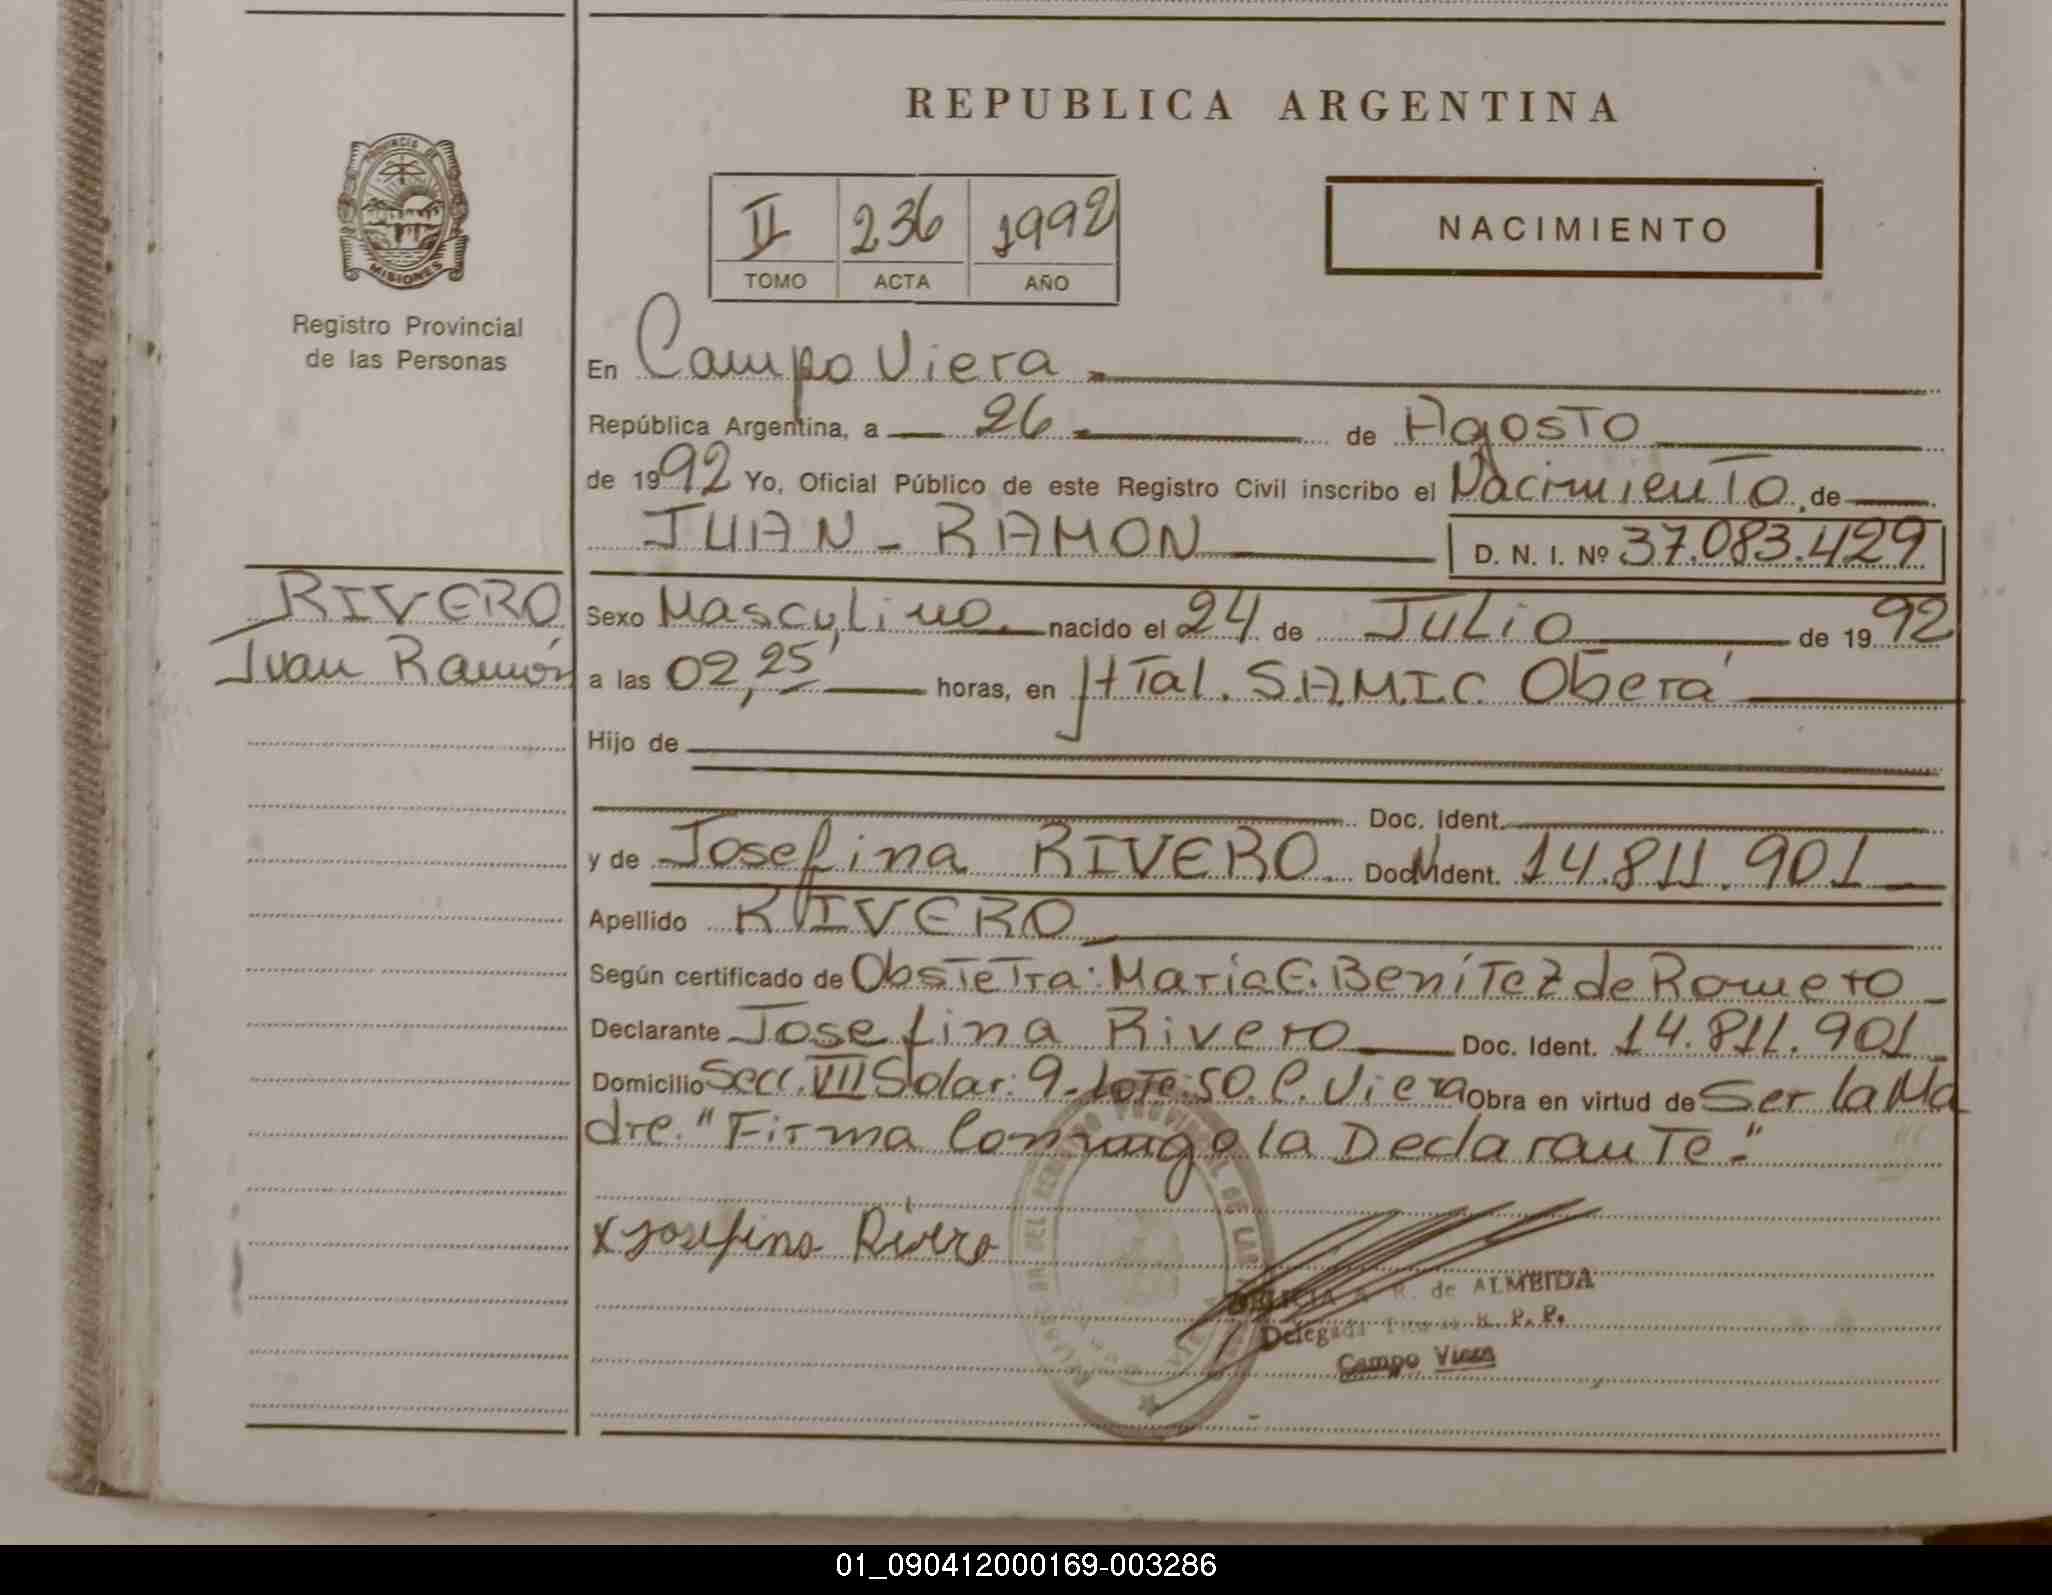 REPUBLICA ARGENTINA
PROVINCIA DE
MISIONES
Registro Provincial
de las Personas
II 236 1992
TOMO ACTA AÑO
NACIMIENTO
En Campo Viera
República Argentina, a 26 de Agosto
de 1992 Yo, Oficial Público de este Registro Civil inscribo el Nacimiento, de
JUAN - RAMON D. N. I. Nº 37.083.429
RIVERO
Juan Ramón
Sexo Masculino nacido el 24 de Julio de 1992
a las 02,25' horas, en HTal. S.A.M.I.C. Oberá
Hijo de
Doc. Ident.
y de Josefina RIVERO. Doc. Ident. 14.811.901
Apellido RIVERO
Según certificado de Obstetra: Maria E. Benítez de Romero
Declarante Josefina Rivero Doc. Ident. 14.811.901
Domicilio Secc. VII Solar: 9 - Lote: 50. C. Viera Obra en virtud de Ser la Ma
dre. "Firma Conmigo la Declarante."
x Josefina Rivero
R. de ALMEIDA
R. P. P.
Campo Viera
01_090412000169-003286